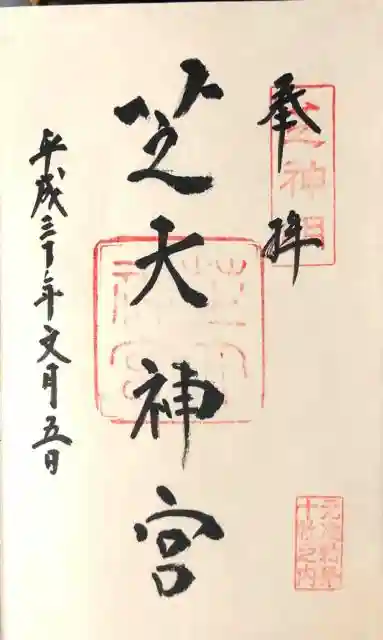 奉拝
芝大神宮
平成三十年文月五日
元准勅祭
十社之内